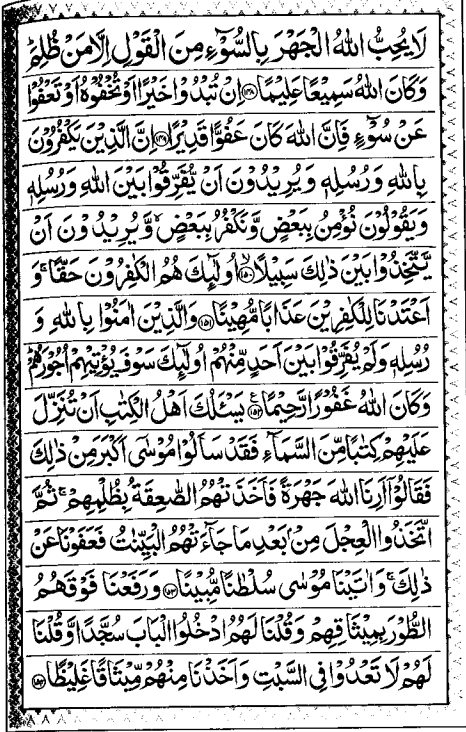 لَا يُحِبُّ اللهُ الْجَهْرَ بِالسُّوْٓءِ مِنَ الْقَوْلِ اِلَّا مَنْ ظُلِمَ ؕ
وَكَانَ اللهُ سَمِيْعًا عَلِيْمًا ﴿۱۴۸﴾ اِنْ تُبْدُوْا خَيْرًا اَوْ تُخْفُوْهُ اَوْ تَعْفُوْا
عَنْ سُوْٓءٍ فَاِنَّ اللهَ كَانَ عَفُوًّا قَدِيْرًا ﴿۱۴۹﴾ اِنَّ الَّذِيْنَ يَكْفُرُوْنَ
بِاللهِ وَرُسُلِهٖ وَيُرِيْدُوْنَ اَنْ يُّفَرِّقُوْا بَيْنَ اللهِ وَرُسُلِهٖ
وَيَقُوْلُوْنَ نُؤْمِنُ بِبَعْضٍ وَّنَكْفُرُ بِبَعْضٍ ۙ وَّيُرِيْدُوْنَ اَنْ
يَّتَّخِذُوْا بَيْنَ ذٰلِكَ سَبِيْلًا ﴿۱۵۰﴾ۙ اُولٰٓئِكَ هُمُ الْكٰفِرُوْنَ حَقًّا ۚ وَ
اَعْتَدْنَا لِلْكٰفِرِيْنَ عَذَابًا مُّهِيْنًا ﴿۱۵۱﴾ وَالَّذِيْنَ اٰمَنُوْا بِاللهِ وَ
رُسُلِهٖ وَلَمْ يُفَرِّقُوْا بَيْنَ اَحَدٍ مِّنْهُمْ اُولٰٓئِكَ سَوْفَ يُؤْتِيْهِمْ اُجُوْرَهُمْ ؕ
وَكَانَ اللهُ غَفُوْرًا رَّحِيْمًا ﴿۱۵۲﴾ۧ يَسْئَلُكَ اَهْلُ الْكِتٰبِ اَنْ تُنَزِّلَ
عَلَيْهِمْ كِتٰبًا مِّنَ السَّمَآءِ فَقَدْ سَاَلُوْا مُوْسٰٓى اَكْبَرَ مِنْ ذٰلِكَ
فَقَالُوْٓا اَرِنَا اللهَ جَهْرَةً فَاَخَذَتْهُمُ الصّٰعِقَةُ بِظُلْمِهِمْ ۚ ثُمَّ
اتَّخَذُوا الْعِجْلَ مِنْۢ بَعْدِ مَا جَآءَتْهُمُ الْبَيِّنٰتُ فَعَفَوْنَا عَنْ
ذٰلِكَ ۚ وَاٰتَيْنَا مُوْسٰى سُلْطٰنًا مُّبِيْنًا ﴿۱۵۳﴾ وَرَفَعْنَا فَوْقَهُمُ
الطُّوْرَ بِمِيْثَاقِهِمْ وَقُلْنَا لَهُمُ ادْخُلُوا الْبَابَ سُجَّدًا وَّقُلْنَا
لَهُمْ لَا تَعْدُوْا فِى السَّبْتِ وَاَخَذْنَا مِنْهُمْ مِّيْثَاقًا غَلِيْظًا ﴿۱۵۴﴾